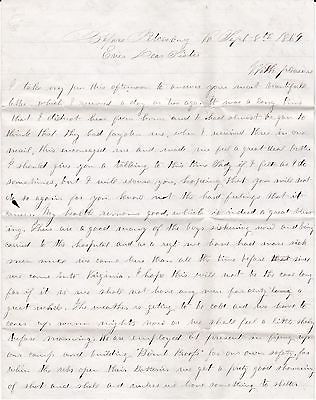 Before Petersburg Va Sept 8th 1864
Ever Dear Sister
With pleasure
I take my pen this afternoon to answer your most
letter which I received a day or two ago it was a long time
that I did not hear from home and I had almost began to
think that they had forgotten me, when I received three in one
mail, this encouraged me and made me feel a great deal better.
I should give you a talking to this time Lady if I felt as I do
sometimes, but I will excuse you, hoping that you will not
do so again for you know not the hard feelings that it
causes. My health remains good, which is indeed a great bless
ing. There are a good many of the boys sickening now and being
carried to the hospital and as a regt we have had more sick
men since we came here than all the time before that since
we came into Virginia. I hope this will not be the case long
for if it is we shall not have any men for duty long a
great while. The weather is getting to be cold and we have to
cover up warm nights now or we shall feel a little chilly
before morning. We are employed at present in fixing up
our camp and building Bomb Proofs for our own safety, for
when the rebs open their Batteries we get a pretty good showering
of shot and shell and unless we have something to shelter